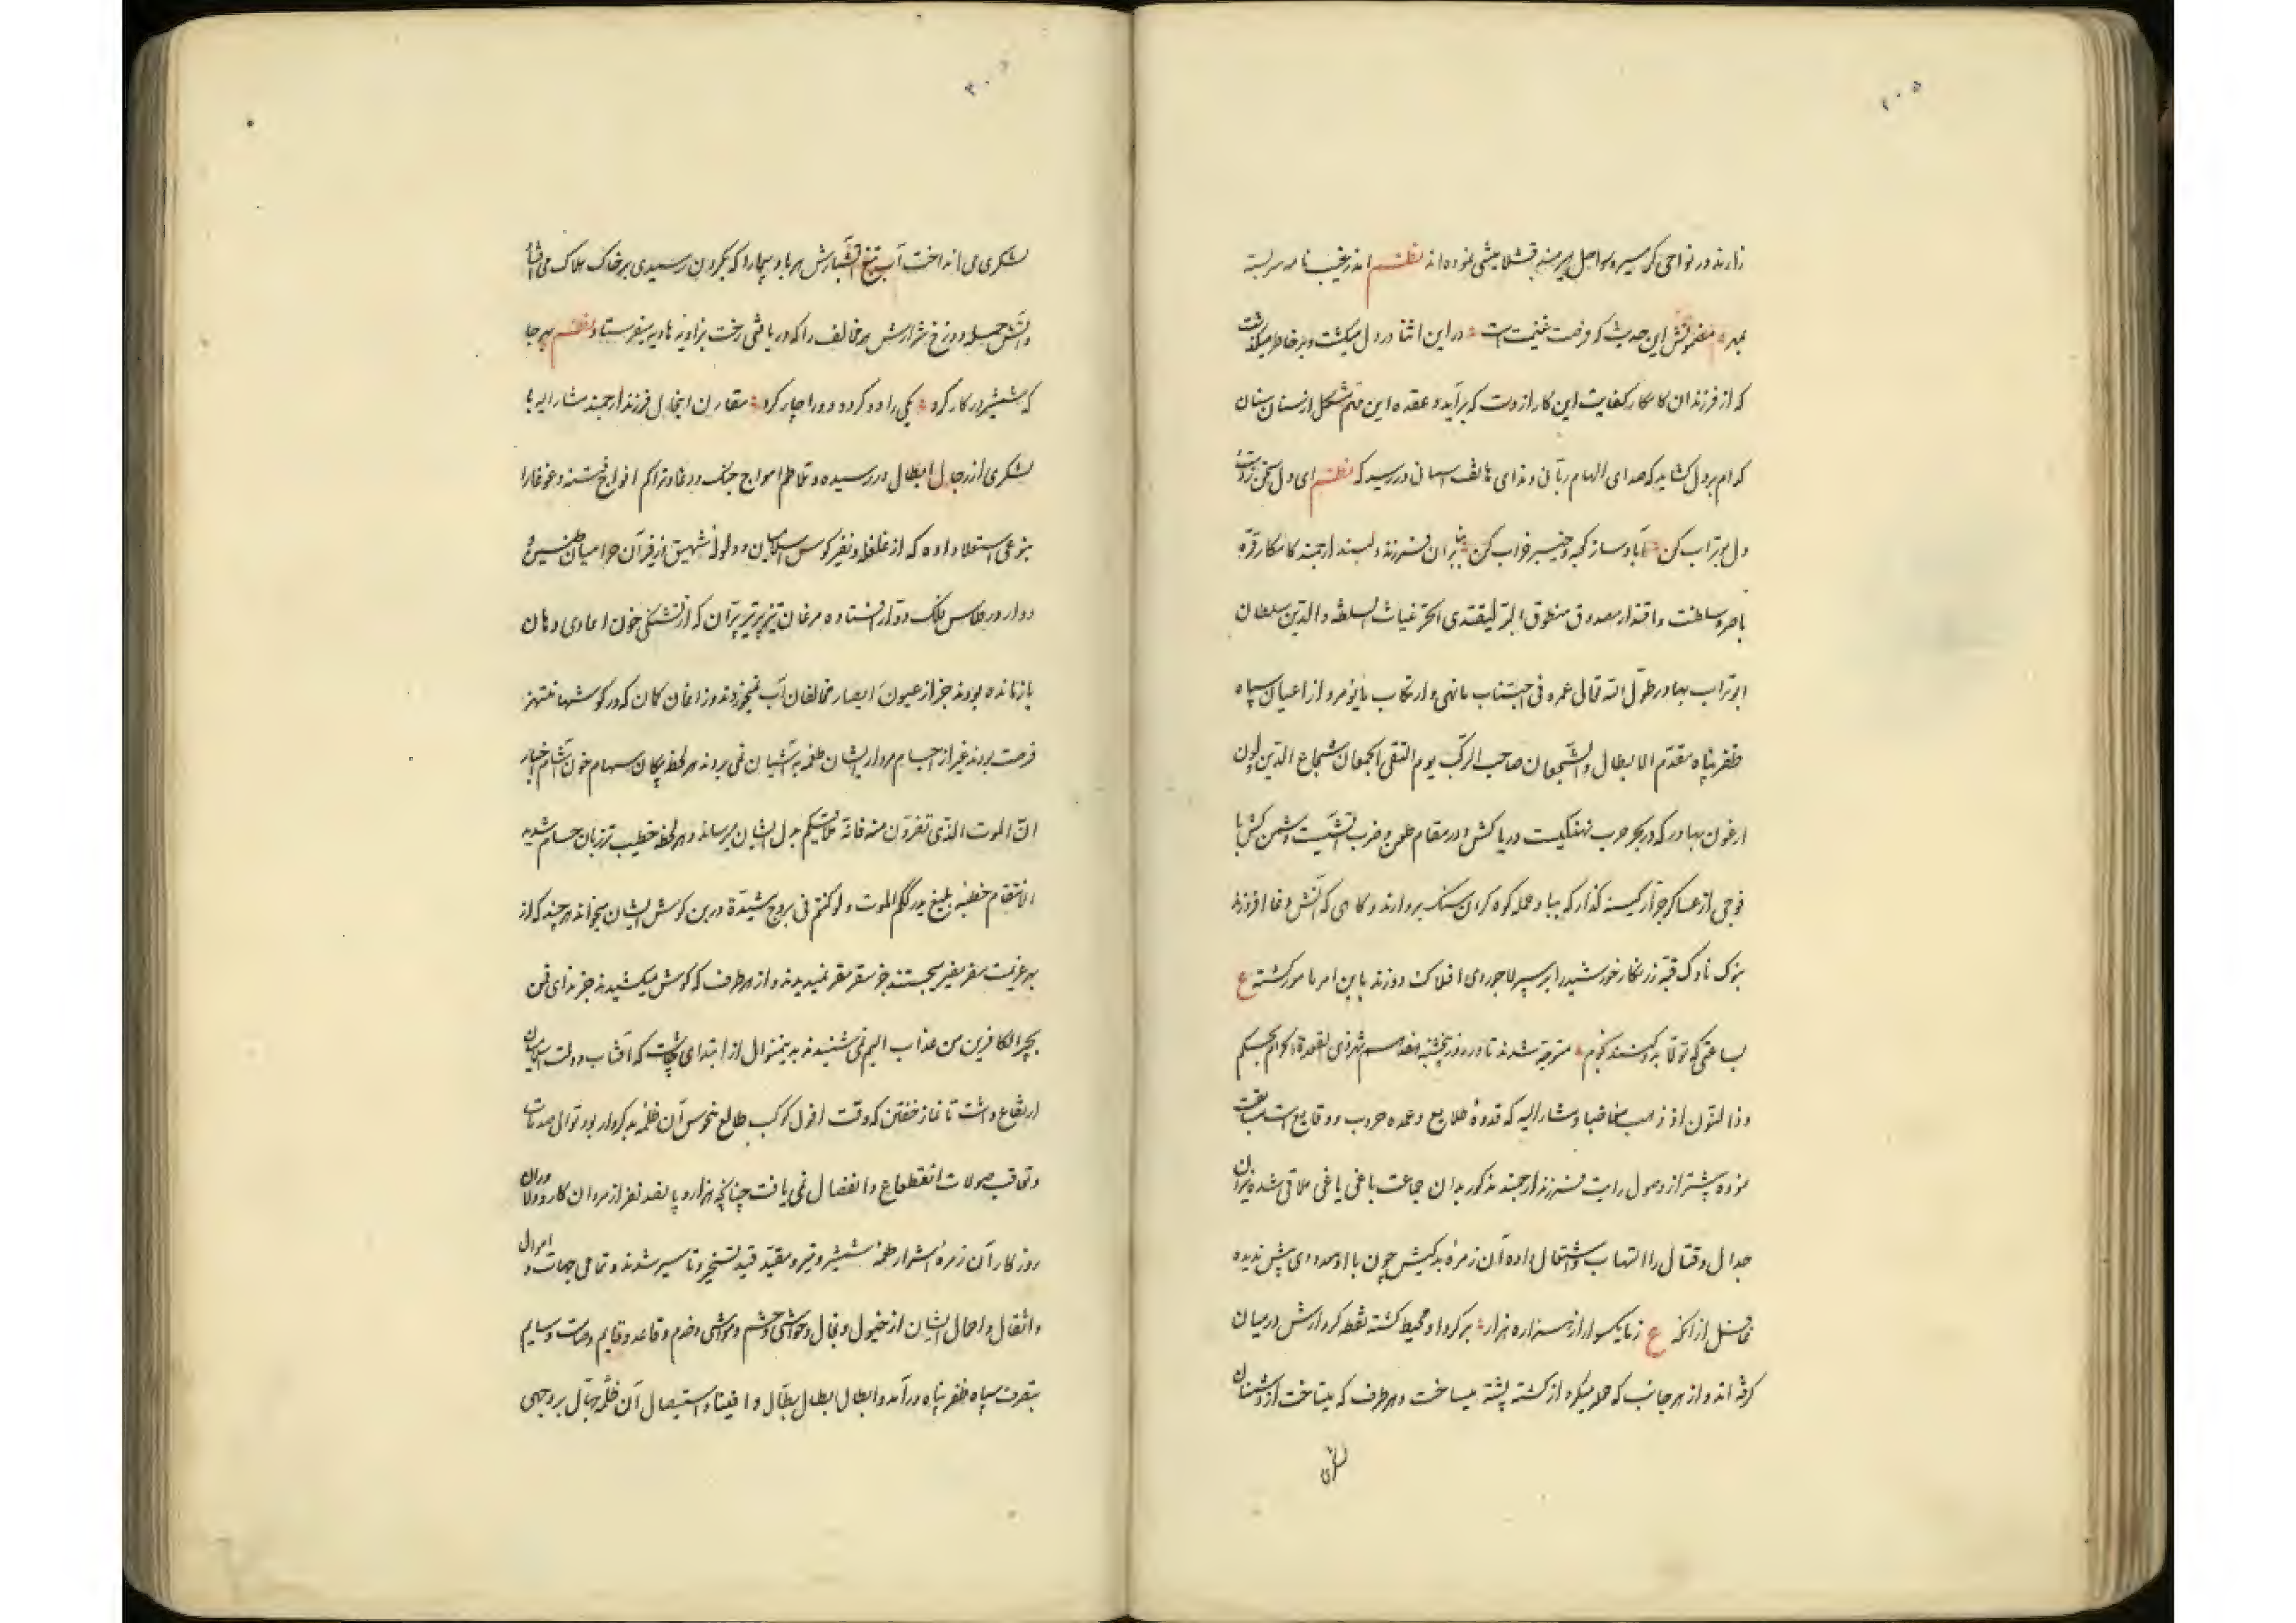 ۲۰۵
دارند در نواحی کوسیر و سواحل هیرمند قشلامیشی نموده اند نظم اندر غیب نامه سربسته
بمهر مضمونش این حدیث که فرصت غنیمت است در این اثنا در دل میگشت و بر خاطر میگذشت
که از فرزندان کامکار کفایت این کار از دست که برآید و عقده این مهم مشکل از سنان بنان
کدام پردل گشاید که صدای الهام ربانی و ندای هاتف سبحانی در رسید که نظم ای دل سخن ز دست
دل بوتراب کن آباد ساز کعبه و خیبر خراب کن بنابران فرزند دلبند ارجمند کامکار قرّه
باصره سلطنت و اقتدار مصدوق منطوق الحرّ غیاث السلطنه والدین سلطان
ابوتراب بهادر طول الله تعالی عمره فی اجتناب ما نهی و ارتکاب ما یؤمر و از اعیان سپاه
ظفر پناه مقدّم الابطال والشجعان صاحب الرکب یوم التقی الجمعان شجاع الدین ذوالنون
ارغون بهادر که در بحر حرب نهنگیست دریا کش و در مقام طعن و ضرب آتشیست دشمن کش با
فوجی از عساکر جرّار کینه گذار که بباد حمله کوه گران سنگ بردارند و گاهی که آتش وغا افروزند
بنوک ناوک قبّه زرنگار خورشید را بر سپر لاجوردی افلاک دوزند باین امر مامور گشته ع
بساعتی که تولّا بدو کنند نجوم متوجّه شدند تا در روز پنجشنبه هفدهم شهر ذی القعدة الحرام بحکم
وذا النون اذ ذهب مغاضبا و مشارالیه که قدوهٔ طلایع و عمده حروب و وقایع است سبقت
نموده پیشتر از وصول رایت فرزند ارجمند مذکور بدان جماعت باغی یاغی ملاقی شده نیران
جدال و قتال را التهاب و اشتعال داده آن زمرهٔ بدکیش چون با او معدودی بیش ندیده
غافل از آنکه ع زما یکسوار از شما ره هزار بر گرد او محیط گشته نقطه کردارش در میان
گرفته اند و از هر جانب که حمله میکرد از کشته پشته میساخت و هر طرف که میتاخت از دشمنان
لشکری
۳۰۵
لشکری می انداخت آب تیغ آتشبارش هر باد پیما را که بگردن رسیدی بر خاک هلاک می افتاد
و آتش حمله دوزخ شرارش هر مخالف را که دریافتی رخت بزاویه هاویه میفرستاد نظم بهر جا
که شمشیر در کار کرد یکی را دو کرد و دو را چار کرد مقارن اینحال فرزند ارجمند مشارالیه با
لشکری از رجال ابطال در رسیده و تلاطم امواج جنگ و وغا و تراکم افواج فتنه و غوغا را
بنوعی استعلا داده که از غلغله و نفیر کوس اسلامیان و ولوله شهیق و زفیر آن حرامیان طنین
دوار در طاس فلک دوّار افتاده مرغان تیزپر تیر پرّان که از تشنگی خون اعادی دهان
باز مانده بودند جز از عیون ابصار مخالفان آب نمیخوردند و زاغان کمان که در گوشها منتهز
فرصت بودند غیر از اجسام مردار ایشان طعمه به آشیان نمی بردند هر لحظه پیکان سهام خون آشام اخبار
انّ الموت الذی تفرّون منه فانه ملاقیکم بدل ایشان میرساند و هر لحظه خطیب تیز زبان حسام شدید
الانتقام خطبه بلیغ یدرککم الموت ولو کنتم فی بروج مشیّدة در بن گوش ایشان میخواند هر چند که از
بهر عزیمت سفر مفر میجستند جز سقر مقر نمیدیدند و از هر طرف که گوش میکشیدند جز ندای فمن
یجیر الکافرین من عذاب الیم نمی شنیدند بدینمنوال از ابتدای چاشت که آفتاب دولت اسلامیان
ارتفاع داشت تا نماز خفتن که وقت افول کوکب طالع منحوس آن ظلمه بدکردار بود توالی صدمات
و تعاقب صولات انقطاع و انفصال نمی یافت چنانچه هزار و پانصد نفر از مردان کار و دلاوران
روزگار آن زمرهٔ اشرار طعمهٔ شمشیر و تیر و مقیّد قید تسخیر و تاسیر شدند و تمامی جهات و اموال
و اثقال و احمال ایشان از خیول و بغال و حواشی و حشم و مواشی و خدم و قاعد و قایم و صامت و سایم
بتصرف سپاه ظفر پناه درآمد و ابطال ابطال بطّال و افینا و استیصال آن ظلمه جهّال بر وجهی